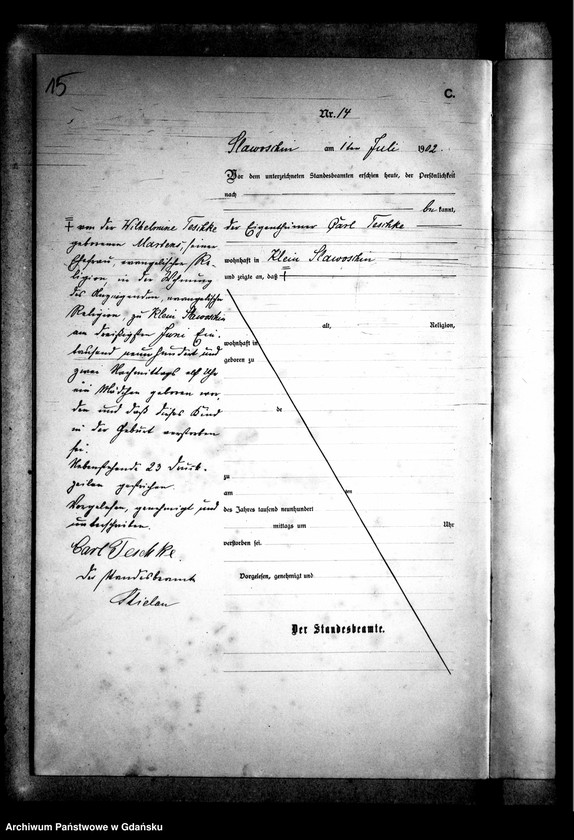 15
C.
Nr. 14
Slawoschin am 1ten Juli 1902.
Vor dem unterzeichneten Standesbeamten erschien heute, der Persönlichkeit
nach
bekannt,
der Eigenthümer Carl Teschke
wohnhaft in Klein Slawoschin
und zeigte an, daß ‡
‡ von der Wilhelmine Teschke
geborenen Martens, seiner
Ehefrau, evangelischer Re-
ligion, in der Wohnung
des Anzeigenden, evangelischer
Religion, zu Klein Slawoschin
am dreißigsten Juni Ein-
tausend neunhundert und
zwei Nachmittags elf Uhr
ein Mädchen geboren wor-
den und daß dieses Kind
in der Geburt verstorben
sei.
Nebenstehende 23 Druck-
zeilen gestrichen.
Vorgelesen, genehmigt und
unterschrieben.
Carl Teschke.
Der Standesbeamte
alt, Religion,
wohnhaft in
geboren zu
de
zu
am ten
des Jahres tausend neunhundert
mittags um Uhr
verstorben sei.
Vorgelesen, genehmigt und
Der Standesbeamte.
Archiwum Państwowe w Gdańsku